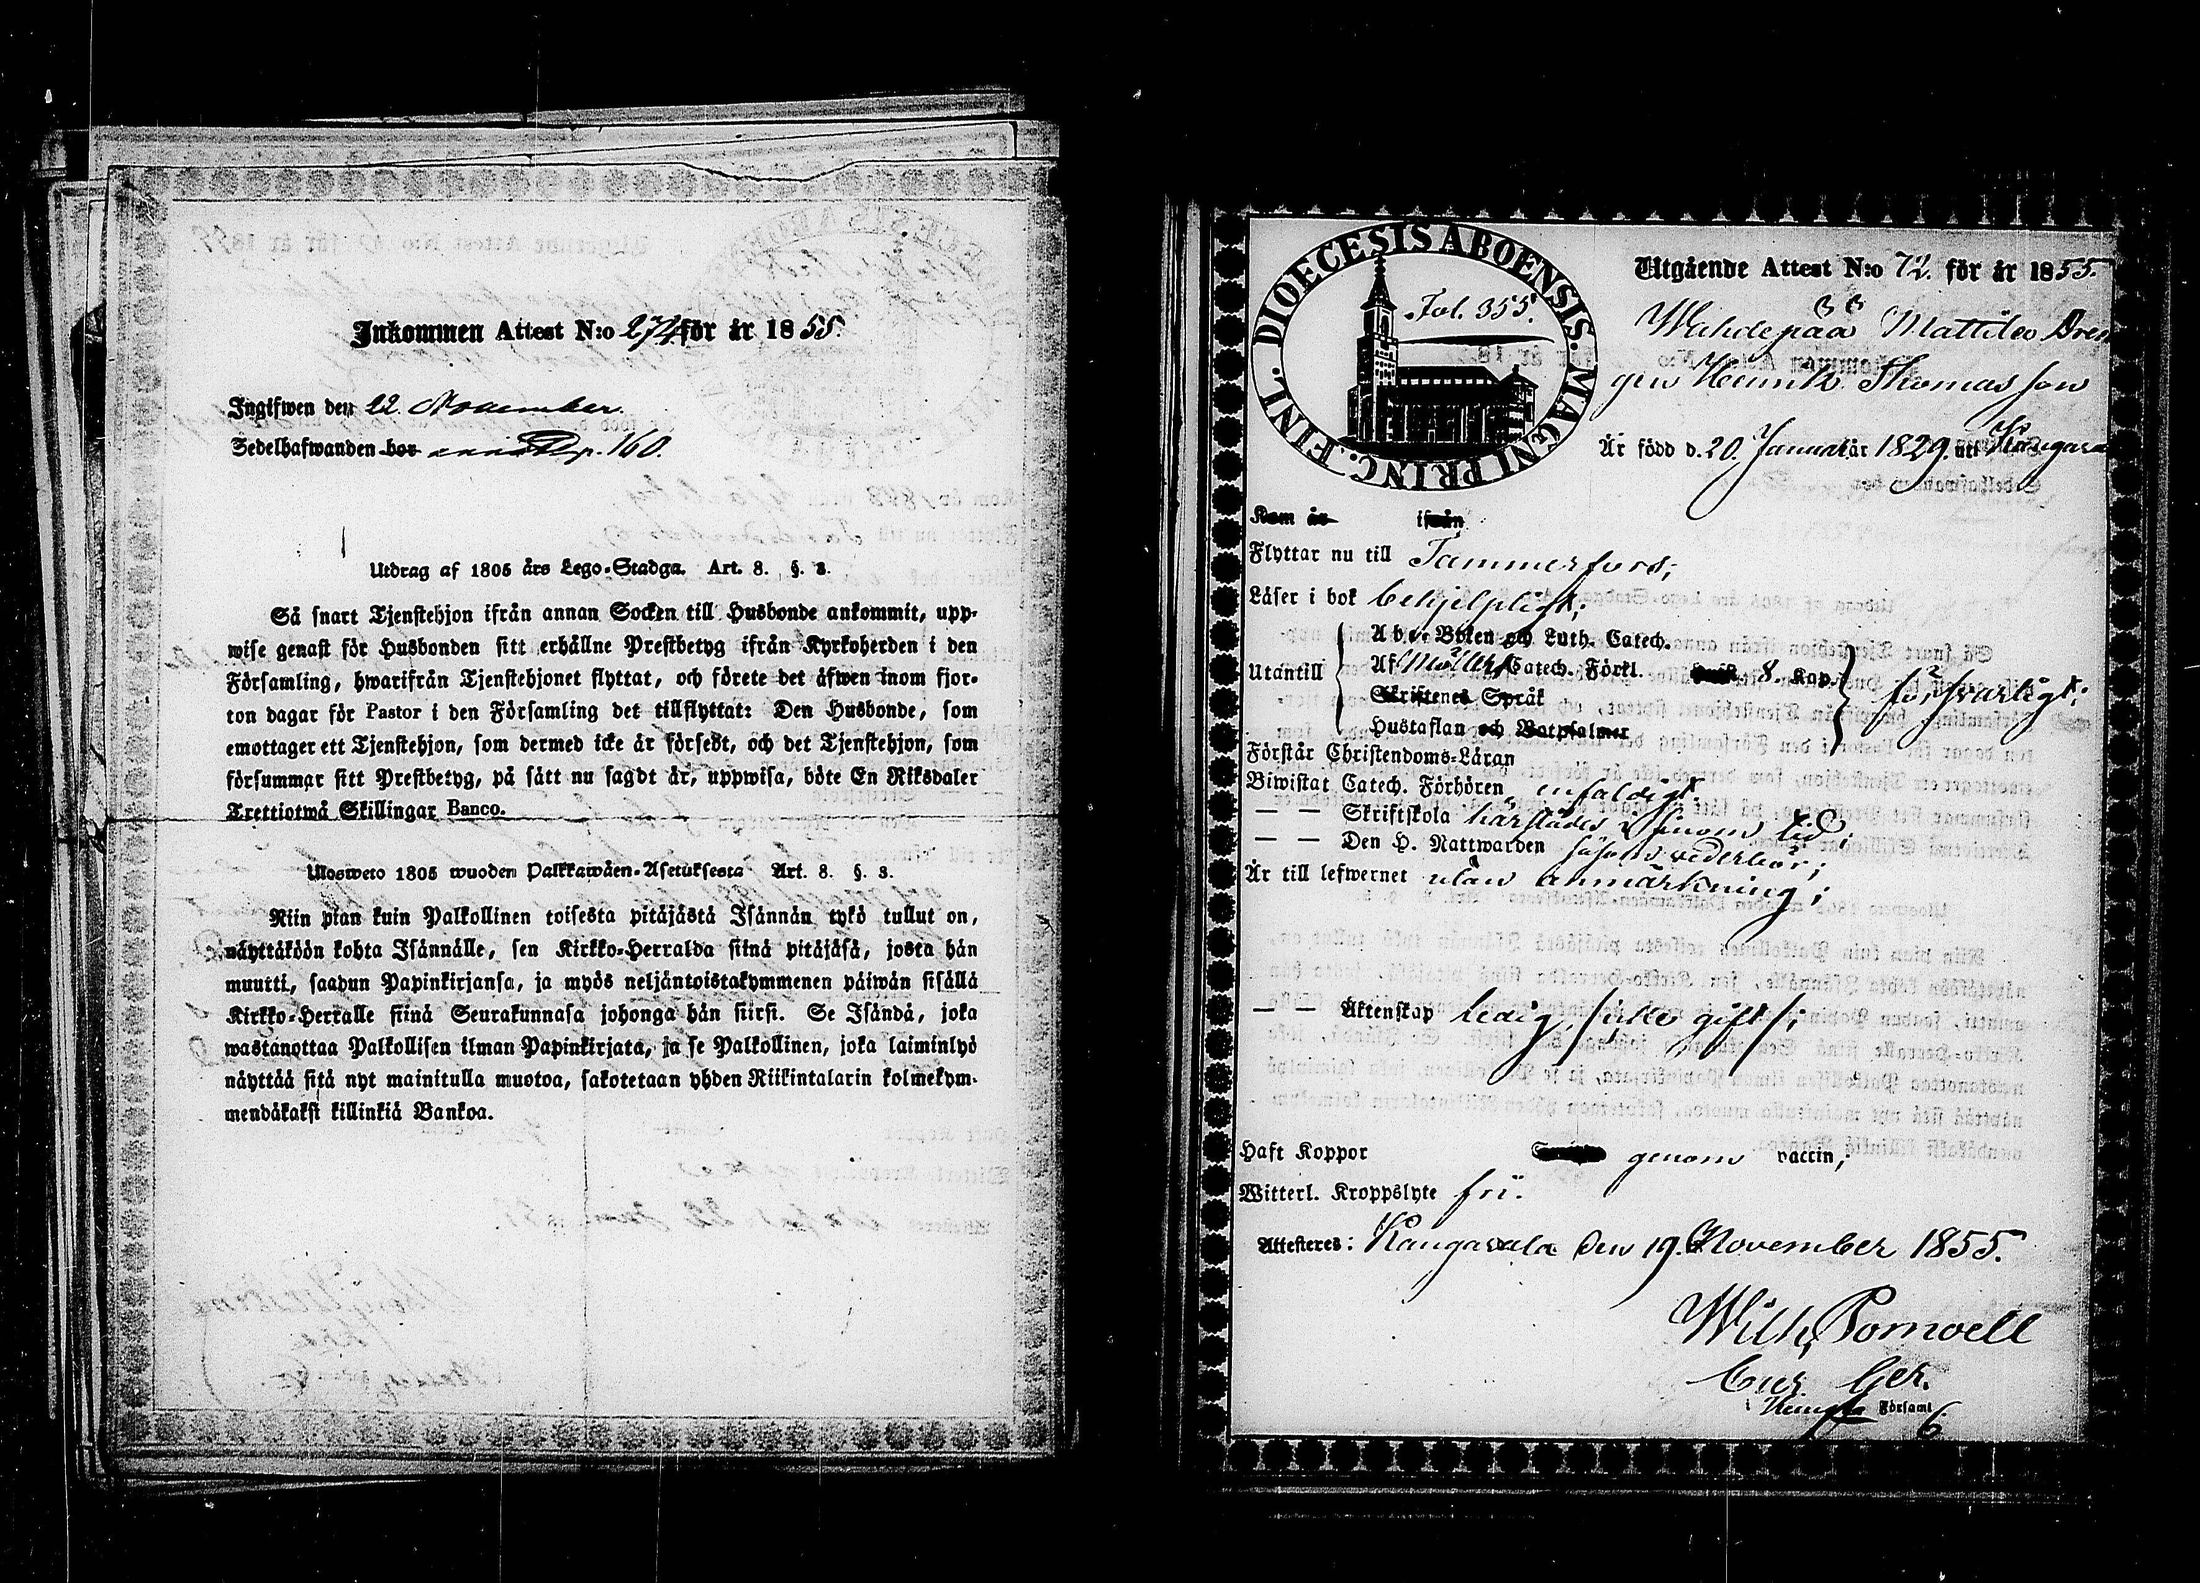 Inkommen Attest N:o 274 för år 1855.
Ingifwen den 22. November.
Sedelhafwanden bor p. 160.
Utdrag af 1805 års Lego-Stadga. Art. 8. §. 3.
Så snart Tjenstehjon ifrån annan Socken till Husbonde ankommit, upp-
wise genast för Husbonden sitt erhållne Prestbetyg ifrån Kyrkoherden i den
Församling, hwarifrån Tjenstehjonet flyttat, och förete det äfwen inom fjor-
ton dagar för Pastor i den Församling det tillflyttat: Den Husbonde, som
emottager ett Tjenstehjon, som dermed icke är försedt, och det Tjenstehjon, som
försummar sitt Prestbetyg, på sätt nu sagdt är, uppwisa, böte En Riksdaler
Trettiotwå Skillingar Banco.
Ulosweto 1805 wuoden Palkkawäen-Asetuksesta Art. 8. §. 3.
Niin pian kuin Palkollinen toisesta pitäjästä Isännän tykö tullut on,
näyttäköön kohta Isännälle, sen Kirkko-Herralda siinä pitäjäsä, josta hän
muutti, saadun Papinkirjansa, ja myös neljäntoistakymmenen päiwän sisällä
Kirkko-Herralle siinä Seurakunnasa johonga hän siirsi. Se Isändä, joka
wastanottaa Palkollisen ilman Papinkirjata, ja se Palkollinen, joka laiminlyö
näyttää sitä nyt mainitulla muotoa, sakotetaan yhden Riikintalarin kolmekym-
mendäkaksi killinkiä Bankoa.
DIOECESIS ABOENSIS. MAGNI PRINC. FINL.
Fol. 355.
Utgående Attest N:o 72. för år 1855.
Wahdepää Mattila Dren
gen Henrik Thomasson
Är född d. 20. Januari år 1829. uti Kangasa
Kom år ifrån
Flyttar nu till Tammerfors;
Läser i bok behjelpligt;
Utantill
A b c-Boken och Luth. Catech.
Af Möllers Catech. Förkl. 8. Kap.
Skriftenes Språk
Hustaflan och Botpsalmer
försvarligt;
Förstår Christendoms-Läran
Biwistat Catech. Förhören enfaldigt.
— — Skriftskola härstädes i sinom tid;
— — Den H. Nattwarden såsom vederbör;
Är till lefwernet utan anmärkning;
— — Äktenskap ledig, /:icke gift:/;
Haft Koppor genom vaccin;
Witterl. Kroppslyte fri.
Attesteras: Kangasala den 19. November 1855.
Wilh. Pomoell
Församl